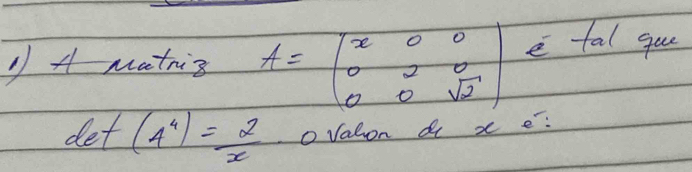 1) A matriz A = (x 0 0
0 2 0
0 0 √2) é tal que
det (A⁴) = 2/x. o valor de x é: